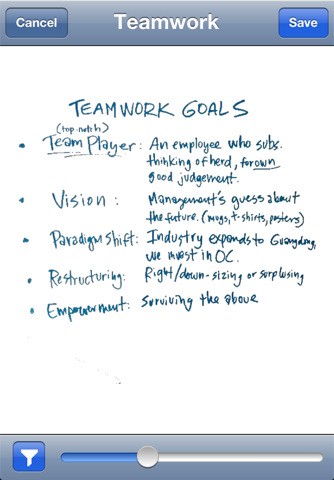 Cancel
Teamwork
Save
TEAMWORK GOALS
(top-notch)
• Team Player: An employee who subs.
thinking of herd, for own
good judgement.
• Vision: Management's guess about
the future. (mugs, t-shirts, posters)
• Paradigm Shift: Industry expands to Guangdong,
we invest in OC.
• Restructuring: Right/down-sizing or surplusing
• Empowerment: Surviving the above